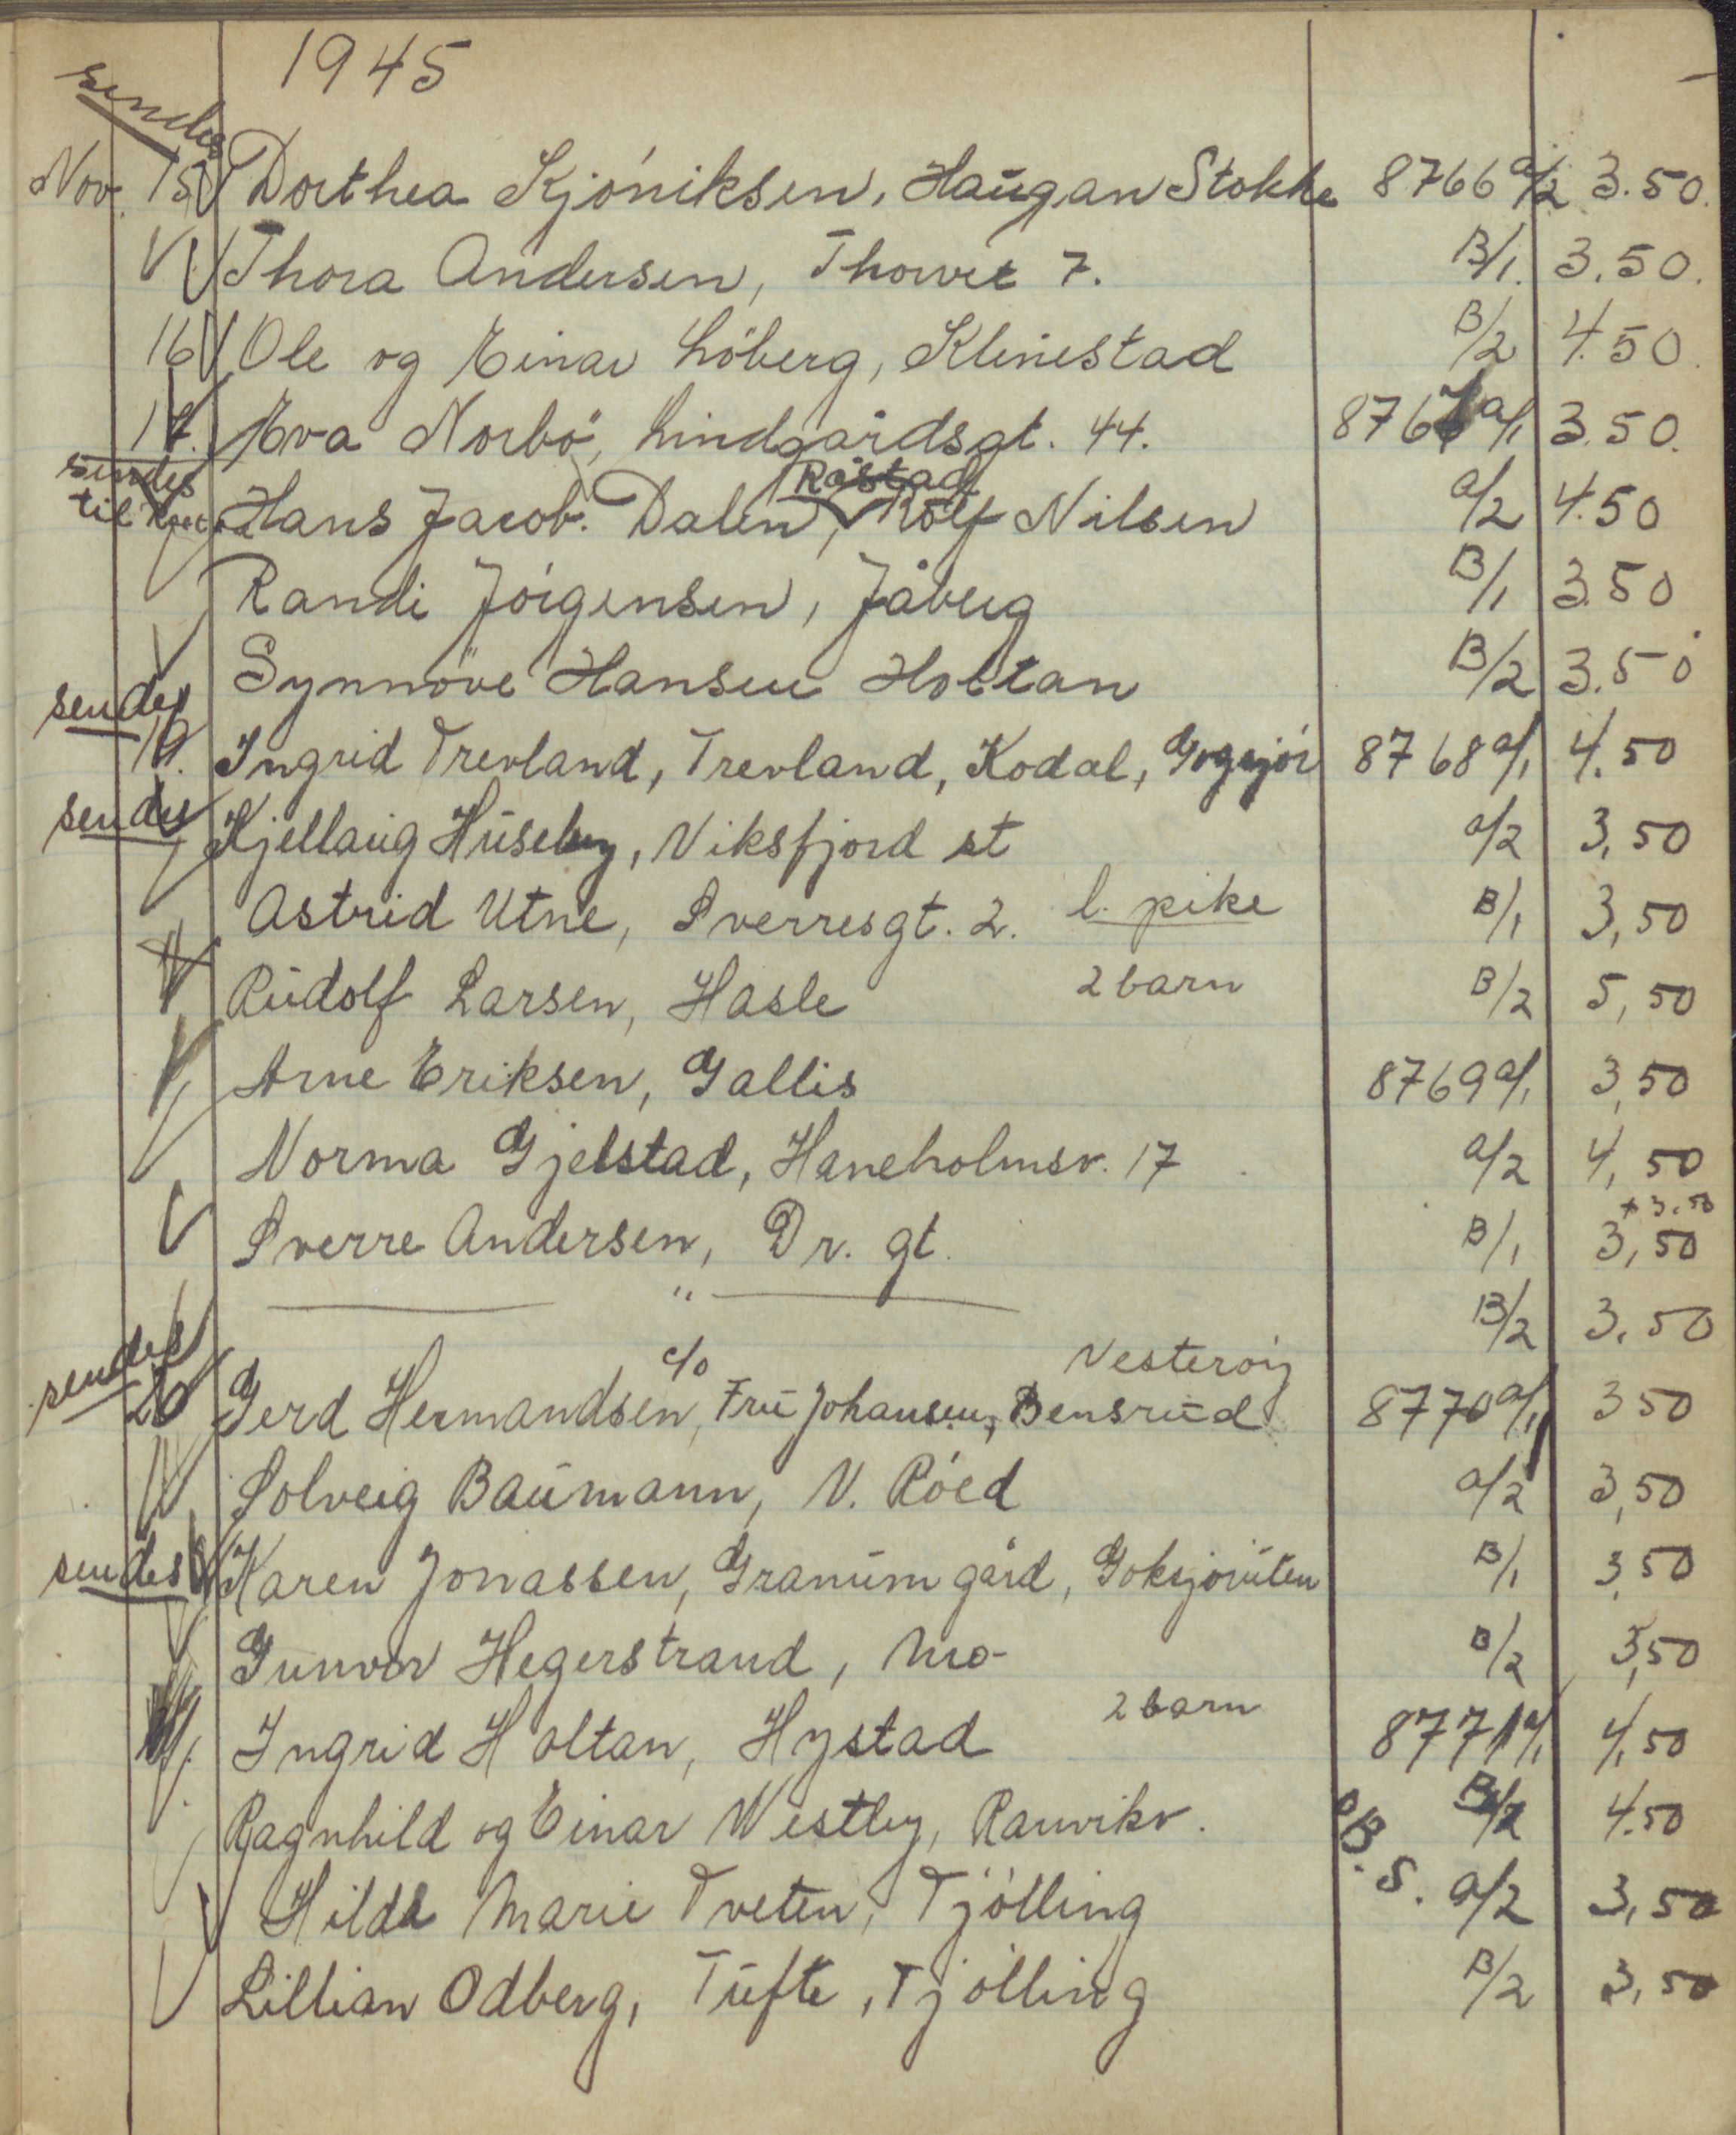 1945
sendes
Nov. 15 Dorthea Kjöniksen, Haugan Stokke 8766 a/2 3.50.
Thora Andersen, Thorvet 7. B/1. 3.50.
16 Ole og Einar Löberg, Klinestad B/2 4.50.
17. Eva Norbö, Lindgårdsgt. 44. 8767 a/1 3.50.
sendes til
Råstad
Hans Jacob Dalen, Rolf Nilsen a/2 4.50
Randi Jörgensen, Jåberg B/1 3.50
Synnöve Hansen Holtan B/2 3.50
sendes
19. Ingrid Trevland, Trevland, Kodal, Gogsjör 8768 a/1 4.50
sendes Kjellaug Huseby, Viksfjord st a/2 3,50
Astrid Utne, Sverresgt. 2. l. pike B/1 3,50
Rudolf Larsen, Hasle 2 barn B/2 5,50
Arne Eriksen, Gallis 8769 a/1 3,50
Norma Gjelstad, Haneholmsv. 17 a/2 4,50
+ 3.50
Sverre Andersen, Dr. gt. B/1 3,50
" B/2 3.50
sendes
c/o Vesteröy
20 Gerd Hermandsen, Fru Johansen, Bensrud 8770 a/1 3 50
Solveig Baumann, V. Röed a/2 3,50
sendes Karen Jonassen, Granum gård, Goksjöruten B/1 3,50
Gunvor Hegerstrand, Mo- B/2 3,50
Ingrid Holtan, Hystad 2 barn 8771 a/1 4,50
Ragnhild og Einar Westby, Ranvikv. B/2 4.50
Hilda Marie Tveten, Tjölling B.S. a/2 3,50
Lillian Odberg, Tufte, Tjölling B/2 3,50